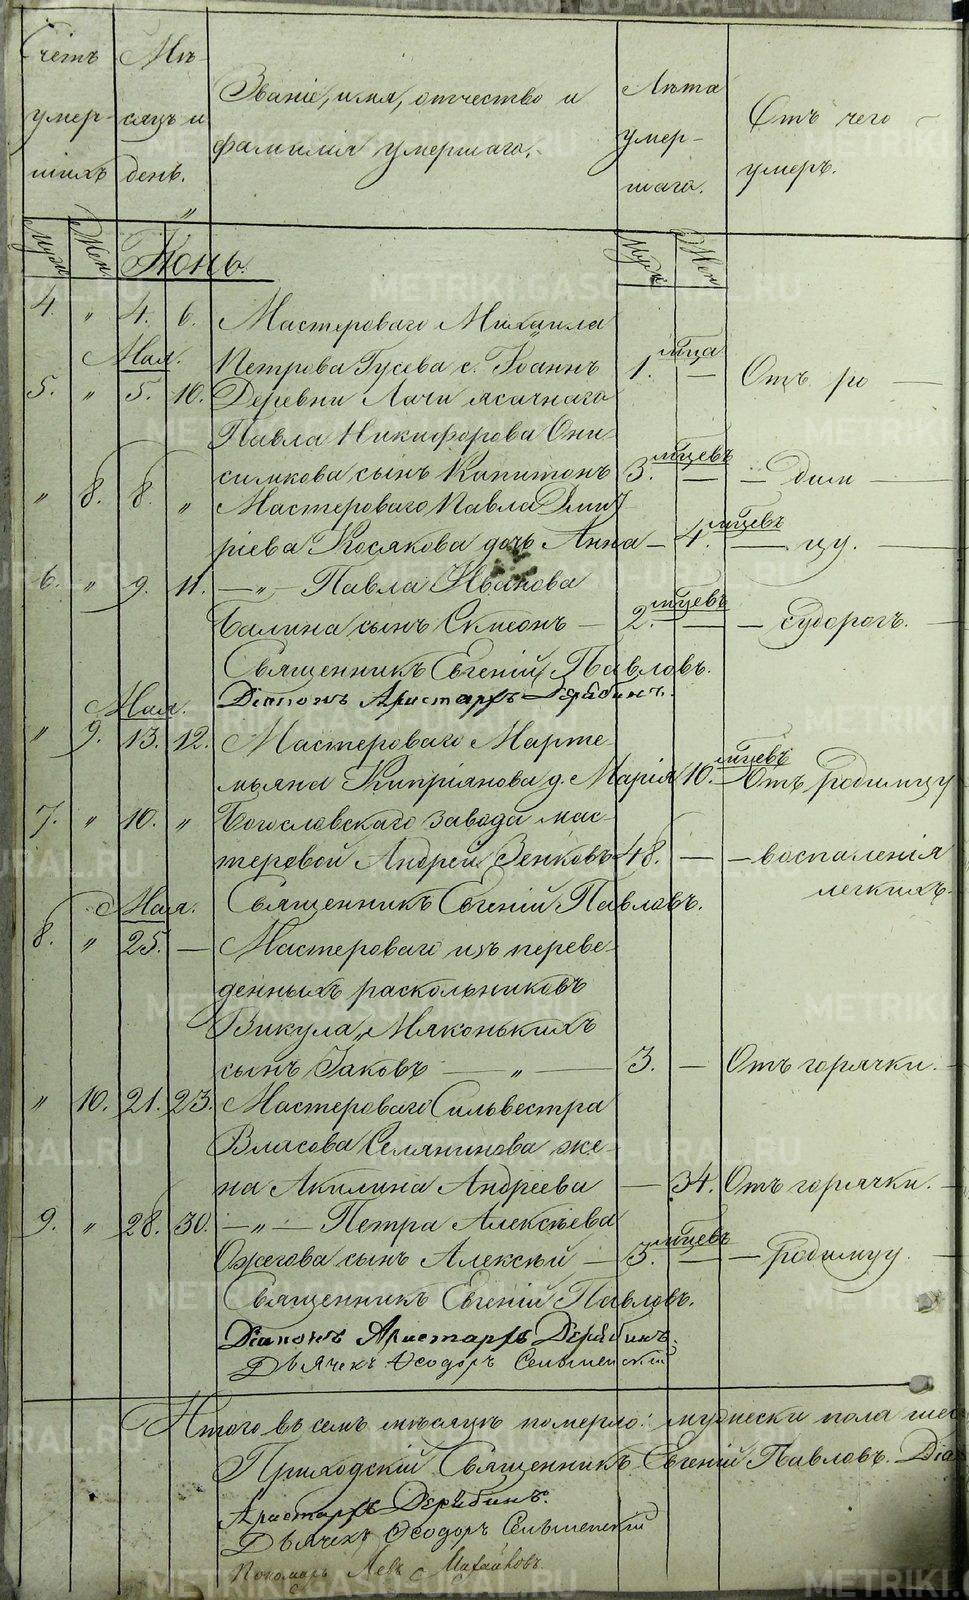 Счетъ умер- шихъ
Мѣ- сяцъ и день.
Званіе, имя, отчество и
фамилія умершаго.
Лѣта умер- шаго.
Отъ чего умеръ.
Муж. Жен. Іюнь. Муж. Жен.
4. " 4. 6. Мастероваго Михаила
Мая. Петрова Гусева с. Іоаннъ 1. мѣца — Отъ ро —
5. " 5. 10. Деревни Лачи ясачнаго
Павла Никифорова Они-
симкова сынъ Капитонъ 3. мѣцевъ — — дим —
" 8. 8. " Мастероваго Павла Дмит-
ріева Косякова дочь Анна — 4. мѣцевъ — цу. —
6. " 9. 11. — " — Павла Иванова
Балина сынъ Симеонъ — 2. мѣцевъ — — судорогъ. —
Священникъ Евгеній Павловъ.
Діаконъ Аристархъ Дерябинъ.
Мая.
" 9. 13. 12. Мастероваго Марте-
мьяна Кипріянова д. Марія 10. мѣцевъ — Отъ родимцу
7. " 10. " Богословскаго завода мас-
теровой Андрей Зенковъ 48. — — воспаленія
легкихъ.
Мая. Священникъ Евгеній Павловъ.
8. " 25. — Мастероваго изъ переве-
денныхъ раскольниковъ
Викула Мяконькихъ
сынъ Іаковъ — " — 3. — Отъ горячки.
" 10. 21. 23. Мастероваго Сильвестра
Власова Селянинова же-
на Акилина Андреева — 34. Отъ горячки. —
9. " 28. 30. — " — Петра Алексѣева
Ожегова сынъ Алексѣй — 3. мѣцевъ — — родимцу. —
Священникъ Евгеній Павловъ.
Діаконъ Аристархъ Дерябинъ.
Дьячекъ Ѳеодоръ Селменскій
Итого въ семъ мѣсяцѣ померло: мужески пола шес
Приходскій Священникъ Евгеній Павловъ. Діа
Аристархъ Дерябинъ.
Дьячекъ Ѳеодоръ Селменскій
Пономарь Левъ
METRIKI.GASO-URAL.RU